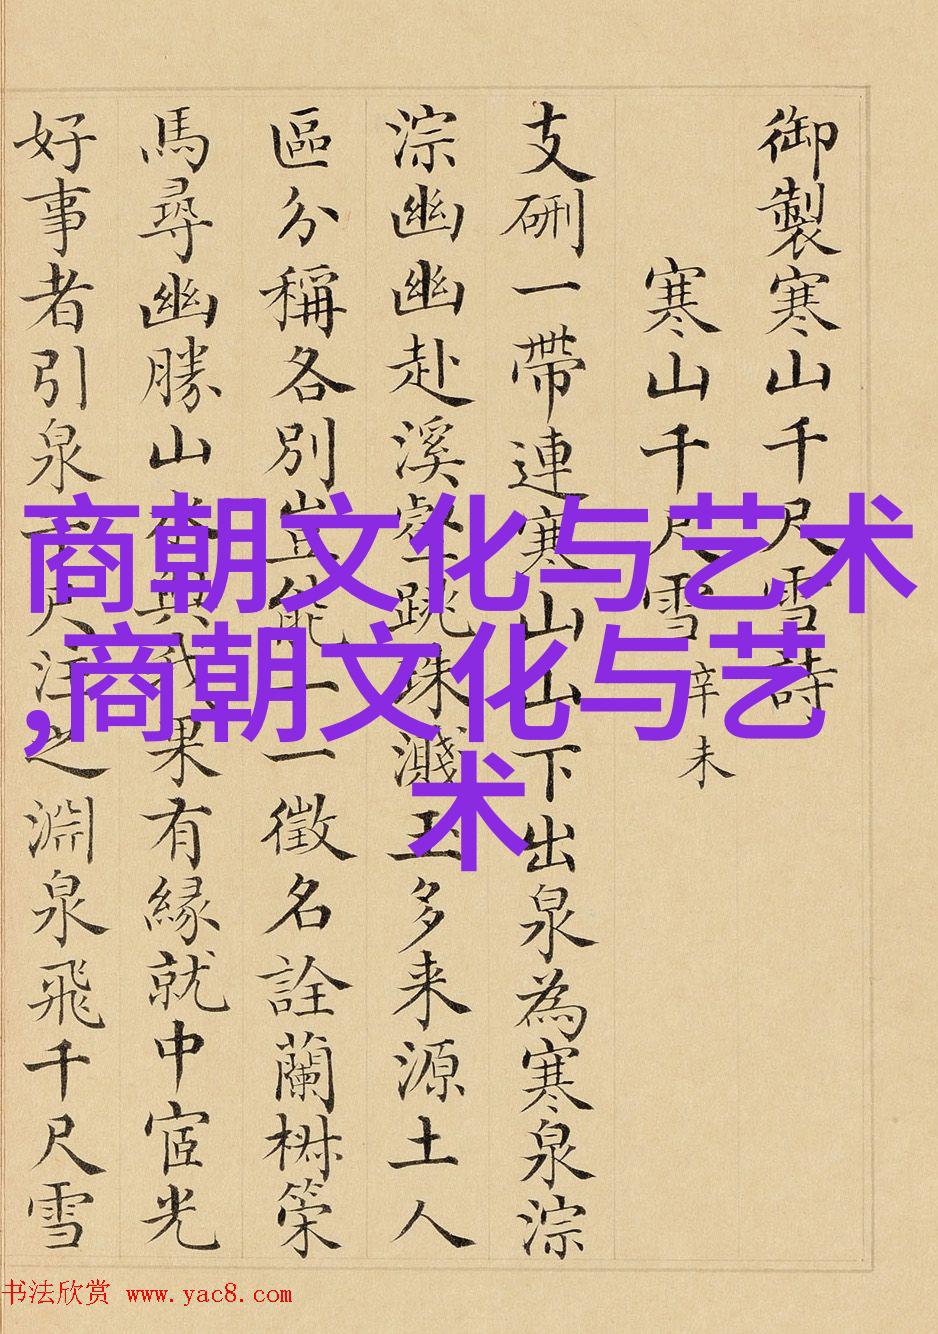 御製寒山千尺雪詩
寒山千尺雪 辛未
支硎一帶連寒山山下出泉為寒泉淙
淙幽幽赴溪壑跳珠濺玉多来源土人
區分稱各別豈能一一徵名詮蘭椒策
馬尋幽勝山水與我果有緣就中宧光
好事者引泉千尺注之淵泉飛千尺雪
商朝文化与艺术
,商朝文化与艺
术
书法欣赏 www.yac8.com